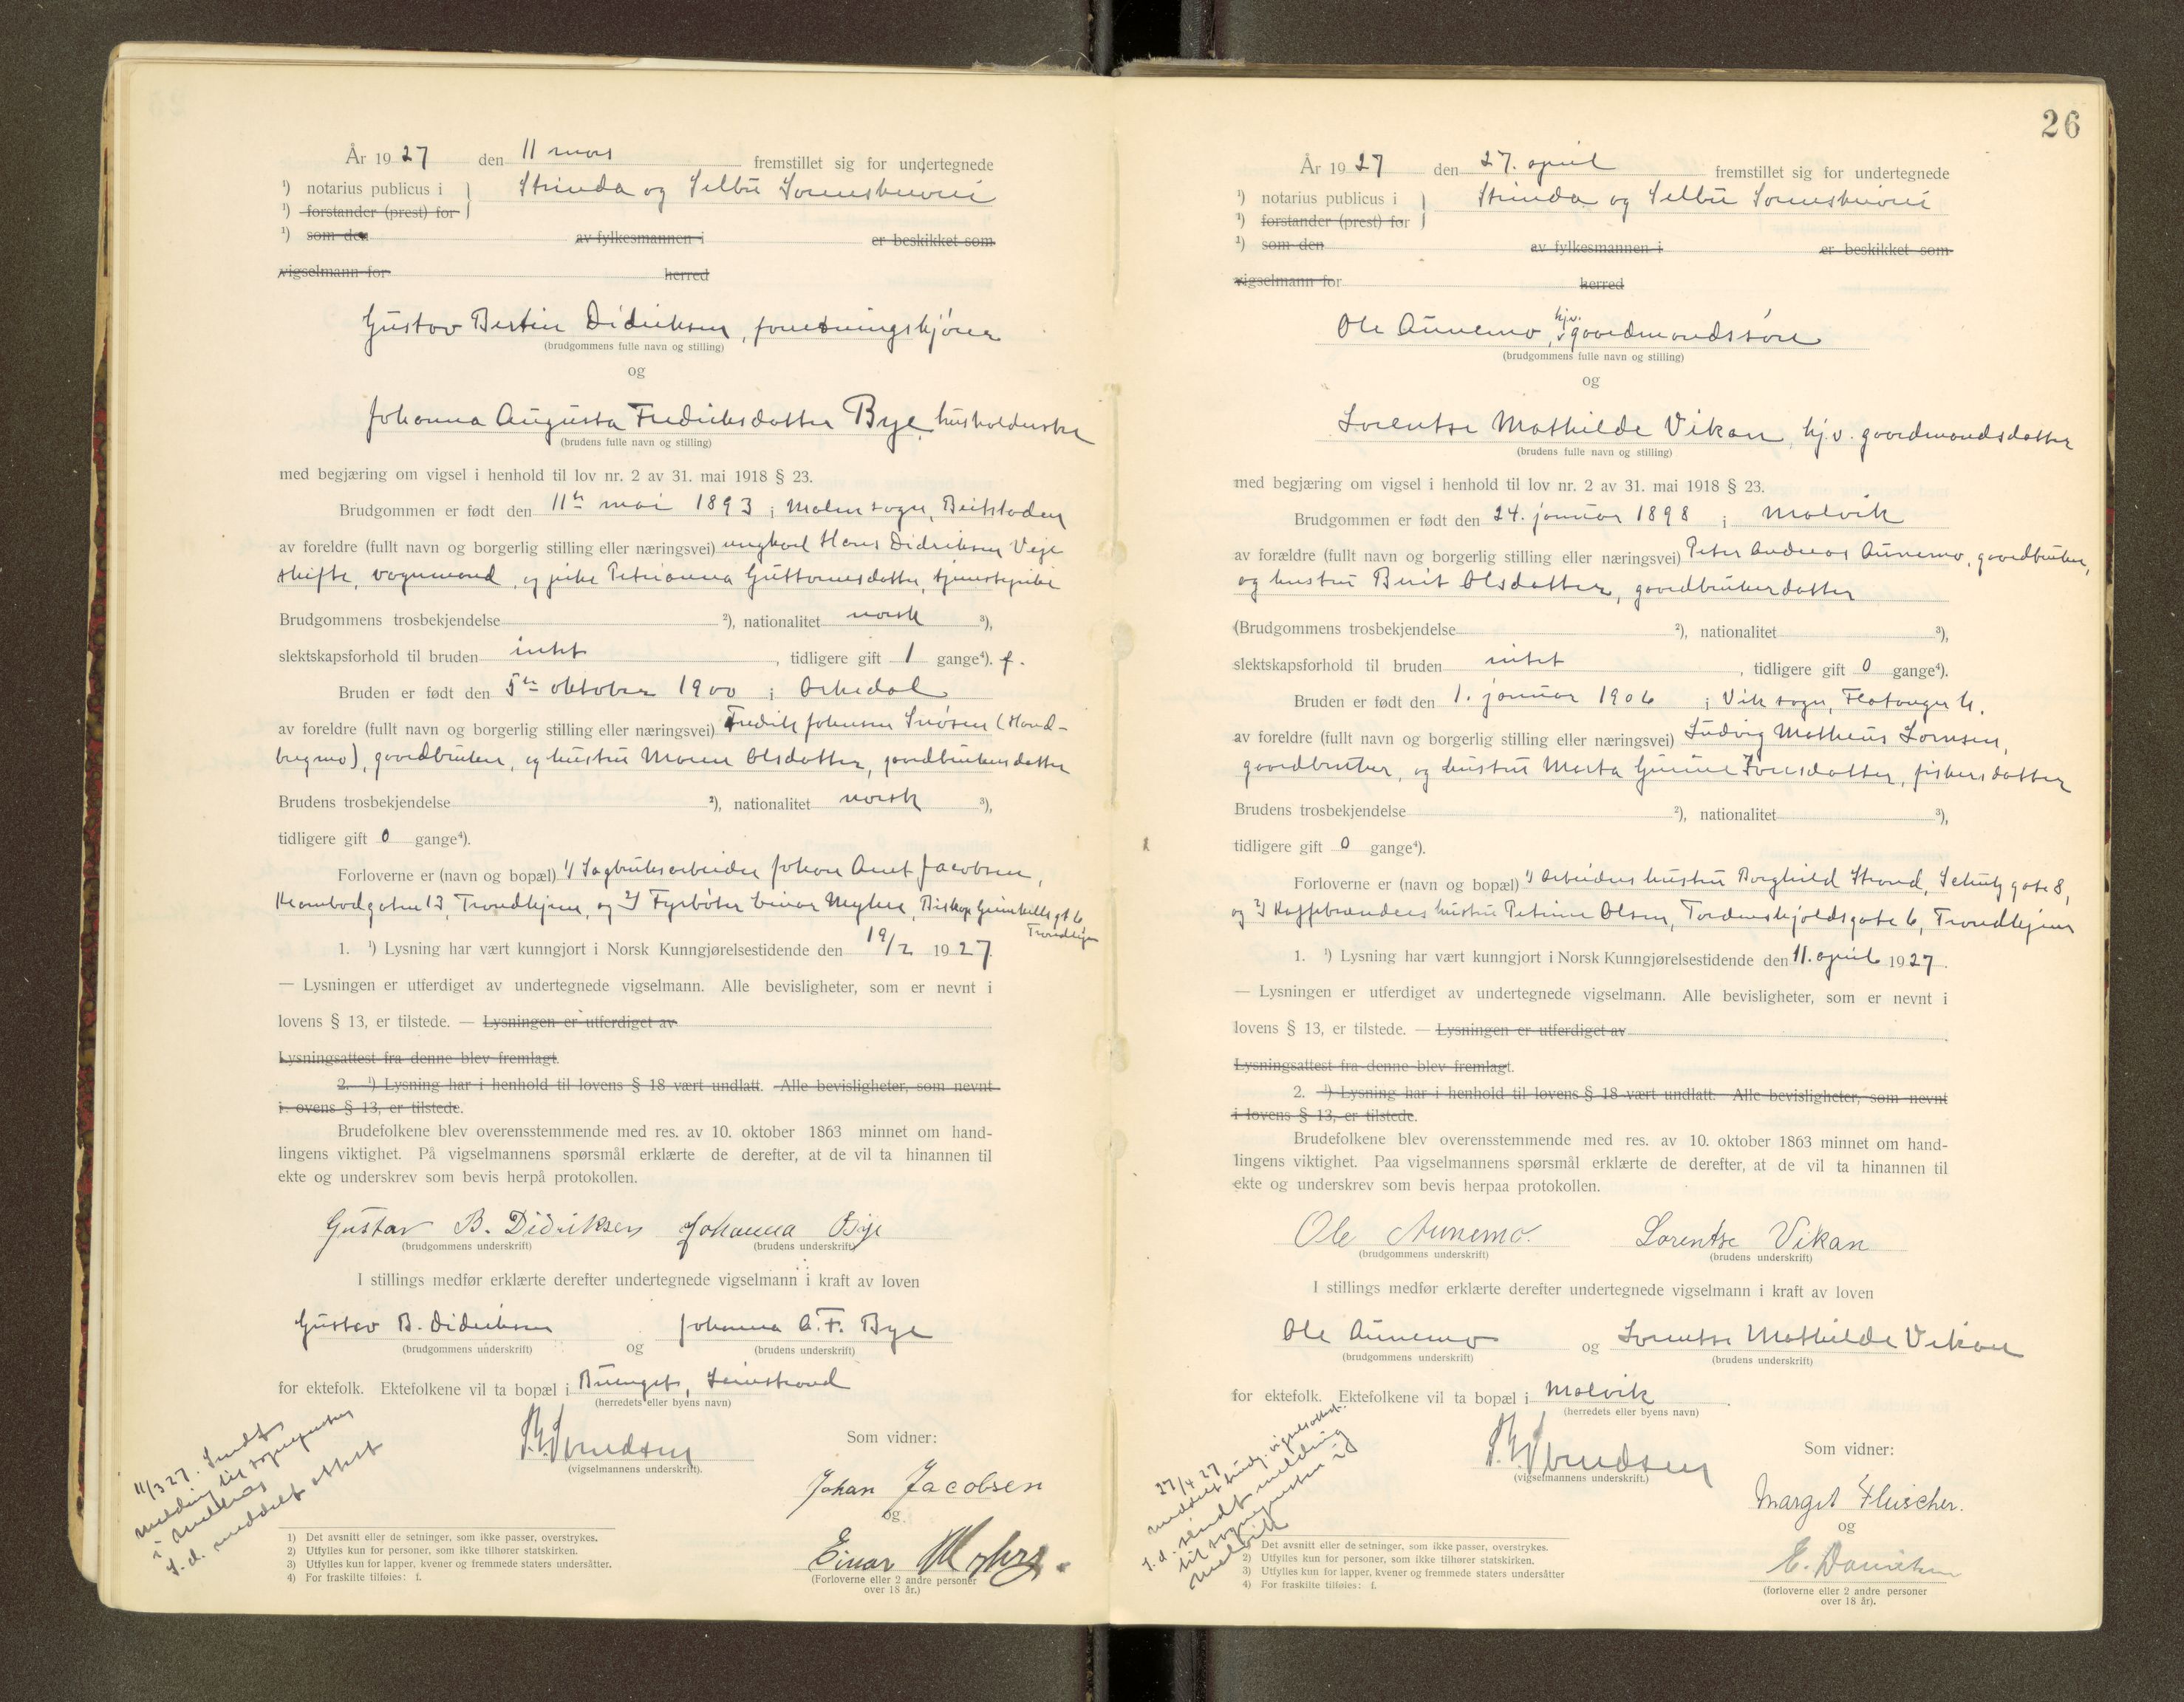 År 1927 den 11 mars fremstillet sig for undertegnede
¹) notarius publicus i } Strinda og Selbu Sorenskriveri
¹) forstander (prest) for
¹) som den av fylkesmannen i er beskikket som
vigselmann for herred
Gustav Bertin Didriksen, forretningskjører
(brudgommens fulle navn og stilling)
og
Johanna Augusta Fredriksdatter Bye, husholderske
(brudens fulle navn og stilling)
med begjæring om vigsel i henhold til lov nr. 2 av 31. mai 1918 § 23.
Brudgommen er født den 11te mai 1893 i Malm sogn, Beitstaden
av foreldre (fullt navn og borgerlig stilling eller næringsvei) ungkarl Hans Didriksen Veje
skifte, vognmand, og pike Petrianna Guttormsdatter, tjenestepike
Brudgommens trosbekjendelse ²), nationalitet norsk ³),
slektskapsforhold til bruden intet, tidligere gift 1 gange⁴). f.
Bruden er født den 5te oktober 1900 i Orkedal
av foreldre (fullt navn og borgerlig stilling eller næringsvei) Fredrik Johnsen Snøsen (Hond-
bregmo), gaardbruker, og hustru Maren Olsdatter, gaardbrukersdatter
Brudens trosbekjendelse ²), nationalitet norsk ³),
tidligere gift 0 gange⁴).
Forloverne er (navn og bopæl) 1) Sagbruksarbeider Johan Anet Jacobsen,
Krambodgaten 13, Trondhjem, og 2) Fyrbøter Einar Myhre, Biskop Grimkells gt 6,
Trondhjem
1. ¹) Lysning har vært kunngjort i Norsk Kunngjørelsestidende den 19/2 1927.
— Lysningen er utferdiget av undertegnede vigselmann. Alle bevisligheter, som er nevnt i
lovens § 13, er tilstede. — Lysningen er utferdiget av
Lysningsattest fra denne blev fremlagt.
2. ¹) Lysning har i henhold til lovens § 18 vært undlatt. Alle bevisligheter, som nevnt
i ovens § 13, er tilstede.
Brudefolkene blev overensstemmende med res. av 10. oktober 1863 minnet om hand-
lingens viktighet. På vigselmannens spørsmål erklærte de derefter, at de vil ta hinannen til
ekte og underskrev som bevis herpå protokollen.
Gustav B. Didriksen Johanna Bye
(brudgommens underskrift) (brudens underskrift)
I stillings medfør erklærte derefter undertegnede vigselmann i kraft av loven
Gustav B. Didriksen og Johanna A. F. Bye
(brudgommens underskrift) (brudens underskrift)
for ektefolk. Ektefolkene vil ta bopæl i Leinstrand
(herredets eller byens navn)
(vigselmannens underskrift).
Som vidner:
Johan Jacobsen
og
Einar Myhre.
(Forloverne eller 2 andre personer
over 18 år.)
11/3 27. Sendt
melding til sogneprest
i Melhus
s. d. meddelt attest
1) Det avsnitt eller de setninger, som ikke passer, overstrykes.
2) Utfylles kun for personer, som ikke tilhører statskirken.
3) Utfylles kun for lapper, kvener og fremmede staters undersåtter.
4) For fraskilte tilføies: f.
26
År 1927 den 27. april fremstillet sig for undertegnede
¹) notarius publicus i } Strinda og Selbu Sorenskriveri
¹) forstander (prest) for
¹) som den av fylkesmannen i er beskikket som
vigselmann for herred
Ole Aunemo, hjv. gaardmandssøn
(brudgommens fulle navn og stilling)
og
Lorentse Mathilde Vikan, hjv. gaardmandsdatter
(brudens fulle navn og stilling)
med begjæring om vigsel i henhold til lov nr. 2 av 31. mai 1918 § 23.
Brudgommen er født den 24. januar 1898 i Malvik
av forældre (fullt navn og borgerlig stilling eller næringsvei) Peter Andreas Aunemo, gaardbruker,
og hustru Berit Olsdatter, gaardbrukerdatter
(Brudgommens trosbekjendelse ²), nationalitet ³),
slektskapsforhold til bruden intet, tidligere gift 0 gange⁴).
Bruden er født den 1. januar 1906 i Vik sogn, Flatanger h.
av foreldre (fullt navn og borgerlig stilling eller næringsvei) Ludvig Matheus Lornsen,
gaardbruker, og hustru Marta Gurine Jonsdatter, fiskersdatter
Brudens trosbekjendelse ²), nationalitet ³),
tidligere gift 0 gange⁴).
Forloverne er (navn og bopæl) 1) Arbeiders hustru Borghild Strand, Schultz gate 8,
og 2) Kaffebrenders hustru Petrine Olsen, Tordenskjoldsgate 6, Trondhjem
1. ¹) Lysning har vært kunngjort i Norsk Kunngjørelsestidende den 11. april 1927.
— Lysningen er utferdiget av undertegnede vigselmann. Alle bevisligheter, som er nevnt i
lovens § 13, er tilstede. — Lysningen er utferdiget av
Lysningsattest fra denne blev fremlagt.
2. ¹) Lysning har i henhold til lovens § 18 vært undlatt. Alle bevisligheter, som nevnt
i lovens § 13, er tilstede.
Brudefolkene blev overensstemmende med res. av 10. oktober 1863 minnet om hand-
lingens viktighet. Paa vigselmannens spørsmål erklærte de derefter, at de vil ta hinannen til
ekte og underskrev som bevis herpaa protokollen.
Ole Aunemo. Lorentse Vikan
(brudgommens underskrift) (brudens underskrift)
I stillings medfør erklærte derefter undertegnede vigselmann i kraft av loven
Ole Aunemo og Lorentse Mathilde Vikan
(brudgommens underskrift) (brudens underskrift)
for ektefolk. Ektefolkene vil ta bopæl i Malvik.
(herredets eller byens navn)
(vigselmannens underskrift.)
Som vidner:
Margit Fleischer.
og
E. Danielsen
(forloverne eller 2 andre personer
over 18 år).
27/4 27
meddelt brudg. vigselsattest.
s. d. sendt melding
til sognepresten i
Malvik
1) Det avsnitt eller de setninger, som ikke passer, overstrykes.
2) Utfylles kun for personer, som ikke tilhører statskirken.
3) Utfylles kun for lapper, kvener og fremmede staters undersåtter
4) For fraskilte tilføies: f.